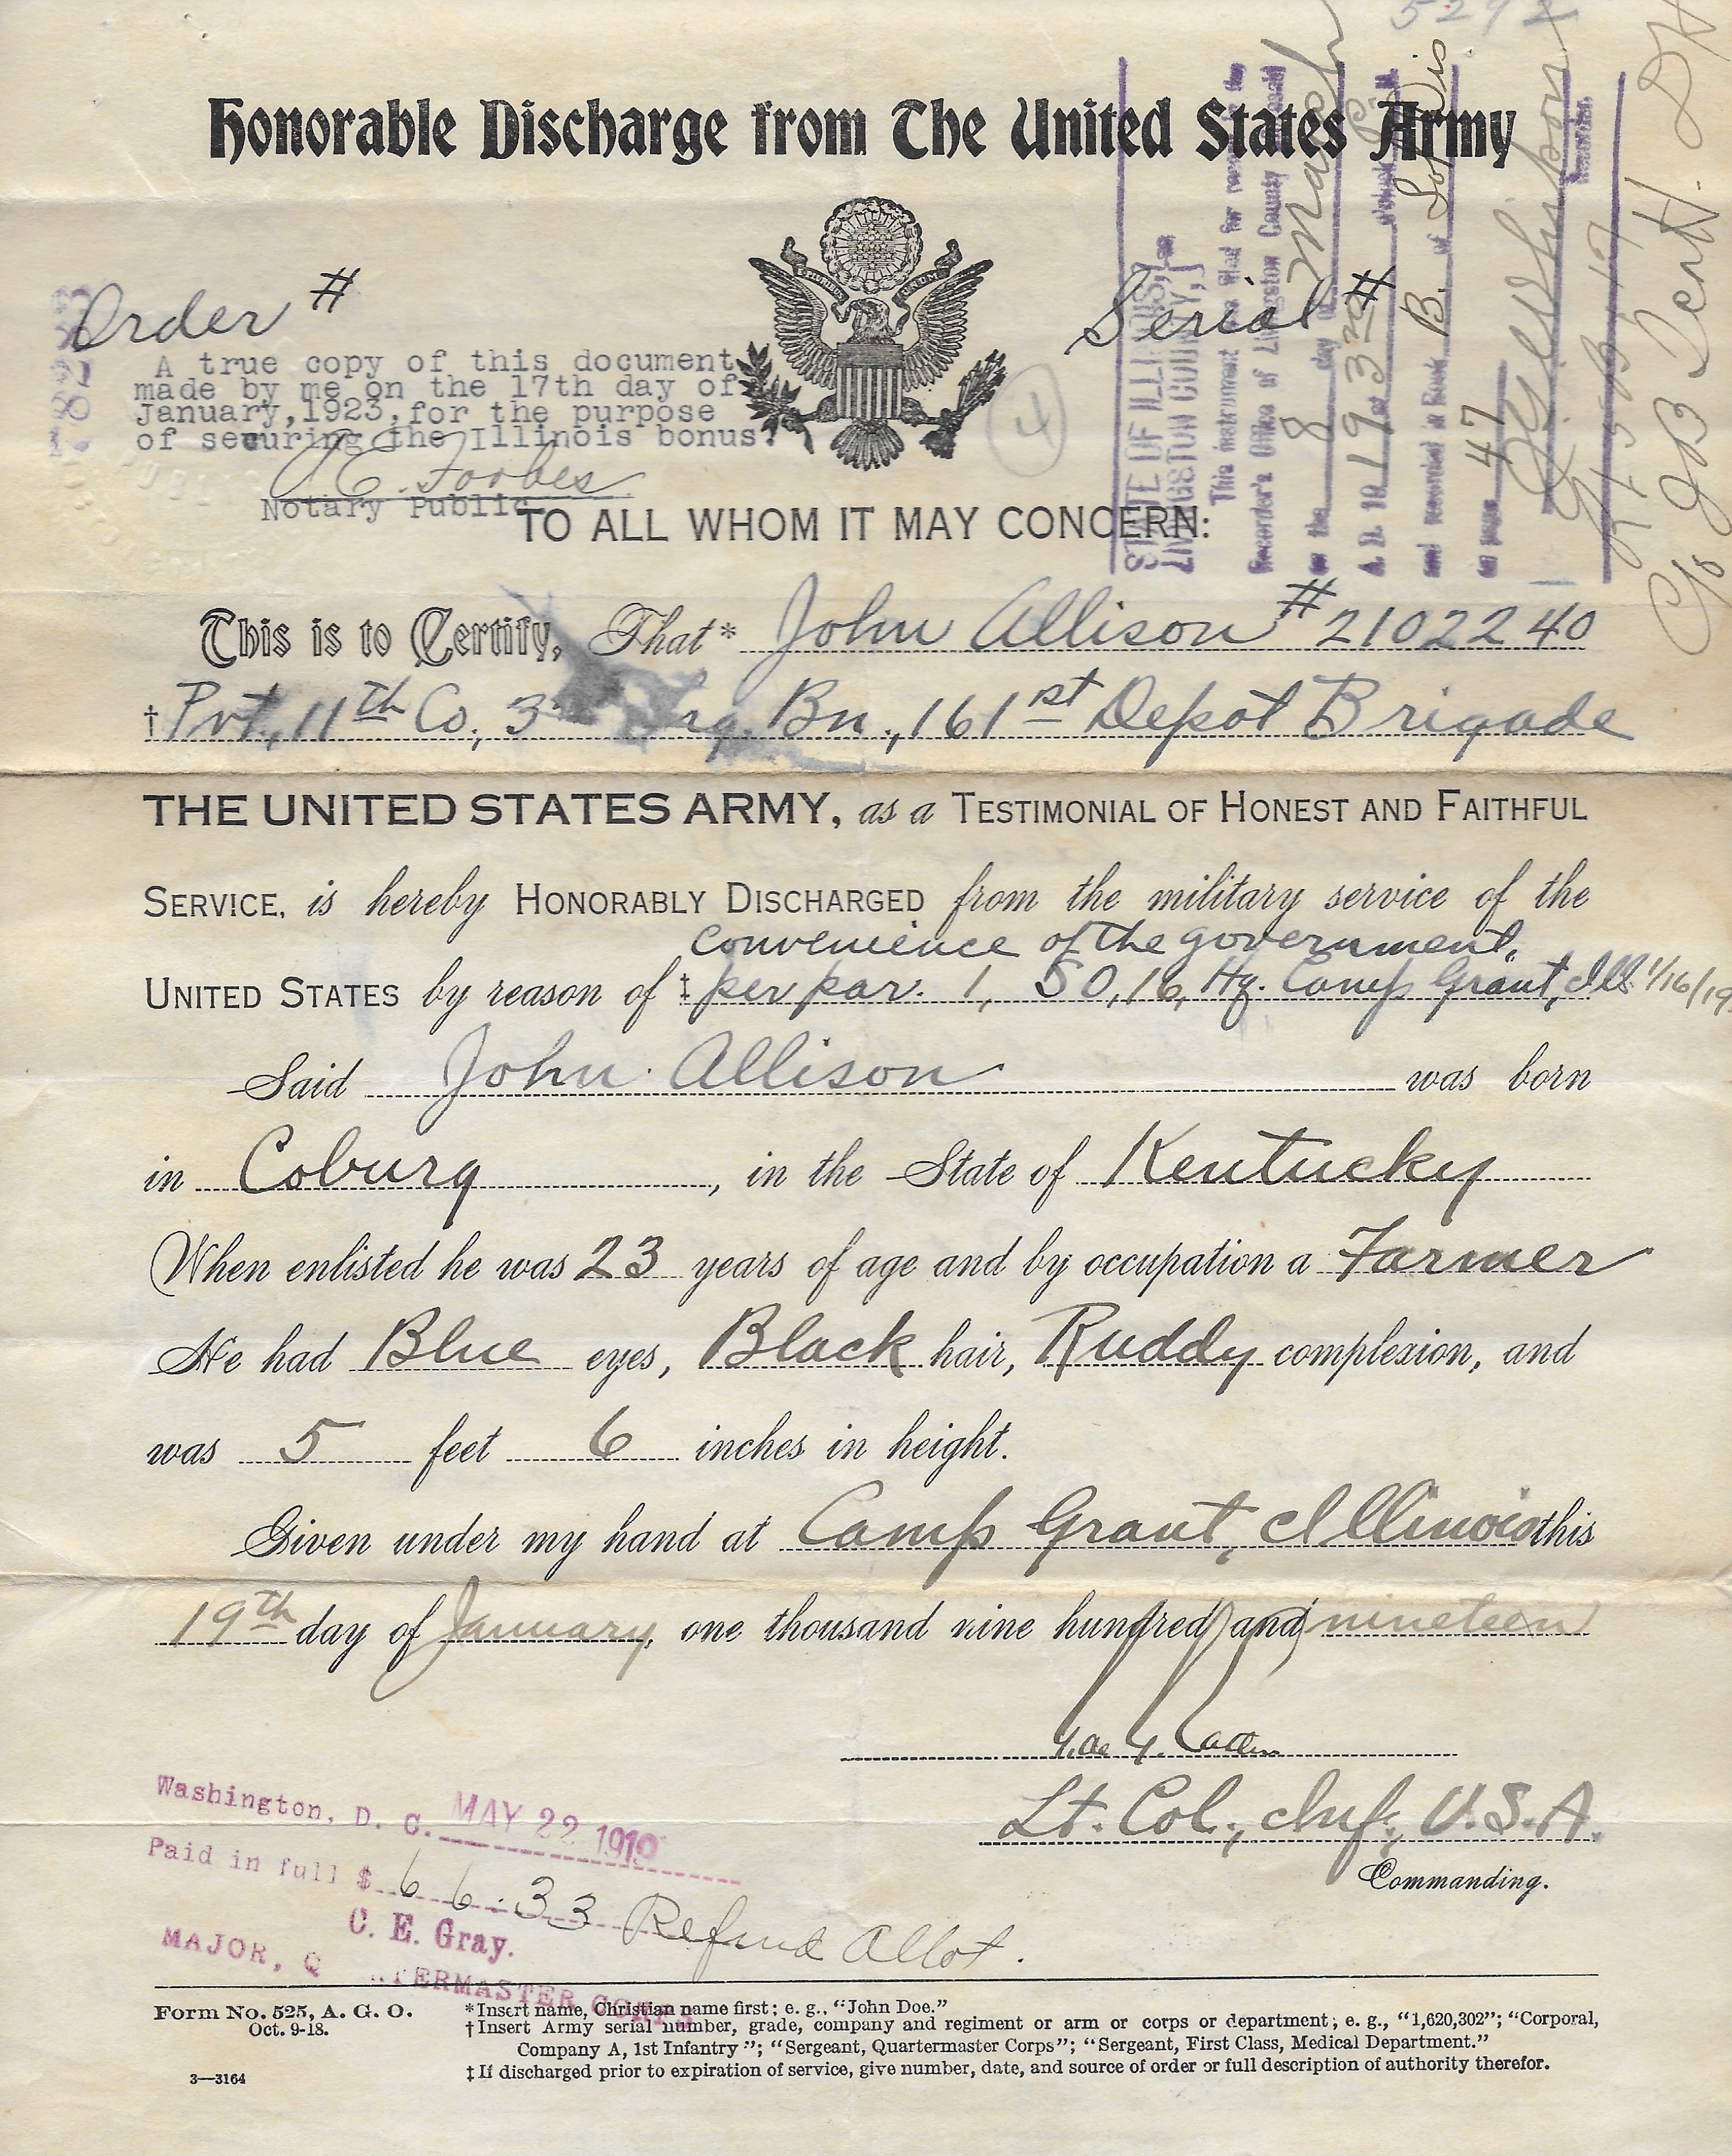 Honorable Discharge from The United States Army
Order #
Serial #
A true copy of this document
made by me on the 17th day of
January, 1923, for the purpose
of securing the Illinois bonus.
A E. Forbes
Notary Public
4
STATE OF ILLINOIS,
LIVINGSTON COUNTY,
This instrument was filed for record in the
Recorder's Office of Livingston County
on the 8 day of March
A. D. 19 1933 at
and recorded in Book B. of
on page 47
Recorder.
TO ALL WHOM IT MAY CONCERN:
This is to Certify, That* John Allison #2102240
† Pvt., 11th Co., Bn., 161st Depot Brigade
THE UNITED STATES ARMY, as a TESTIMONIAL OF HONEST AND FAITHFUL
SERVICE, is hereby HONORABLY DISCHARGED from the military service of the
convenience of the government,
UNITED STATES by reason of ‡ per par. 1, SO, 16, Hq. Camp Grant, Ill. 1/16/19
Said John Allison was born
in Coburg, in the State of Kentucky
When enlisted he was 23 years of age and by occupation a Farmer
He had Blue eyes, Black hair, Ruddy complexion, and
was 5 feet 6 inches in height.
Given under my hand at Camp Grant, Illinois this
19th day of January, one thousand nine hundred and nineteen
Lt. Col., Inf., U.S.A.
Commanding.
Washington, D. C. MAY 22 1919
Paid in full $ 66.33 Refund Allot.
C. E. Gray.
MAJOR, QUARTERMASTER CORPS
Form No. 525, A. G. O.
Oct. 9-18.
3—3164
*Insert name, Christian name first; e. g., "John Doe."
†Insert Army serial number, grade, company and regiment or arm or corps or department; e. g., "1,620,302"; "Corporal,
Company A, 1st Infantry"; "Sergeant, Quartermaster Corps"; "Sergeant, First Class, Medical Department."
‡If discharged prior to expiration of service, give number, date, and source of order or full description of authority therefor.